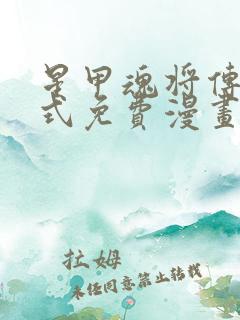 星甲魂将傳
式免費漫畫
拉姆
未经同意禁止转载